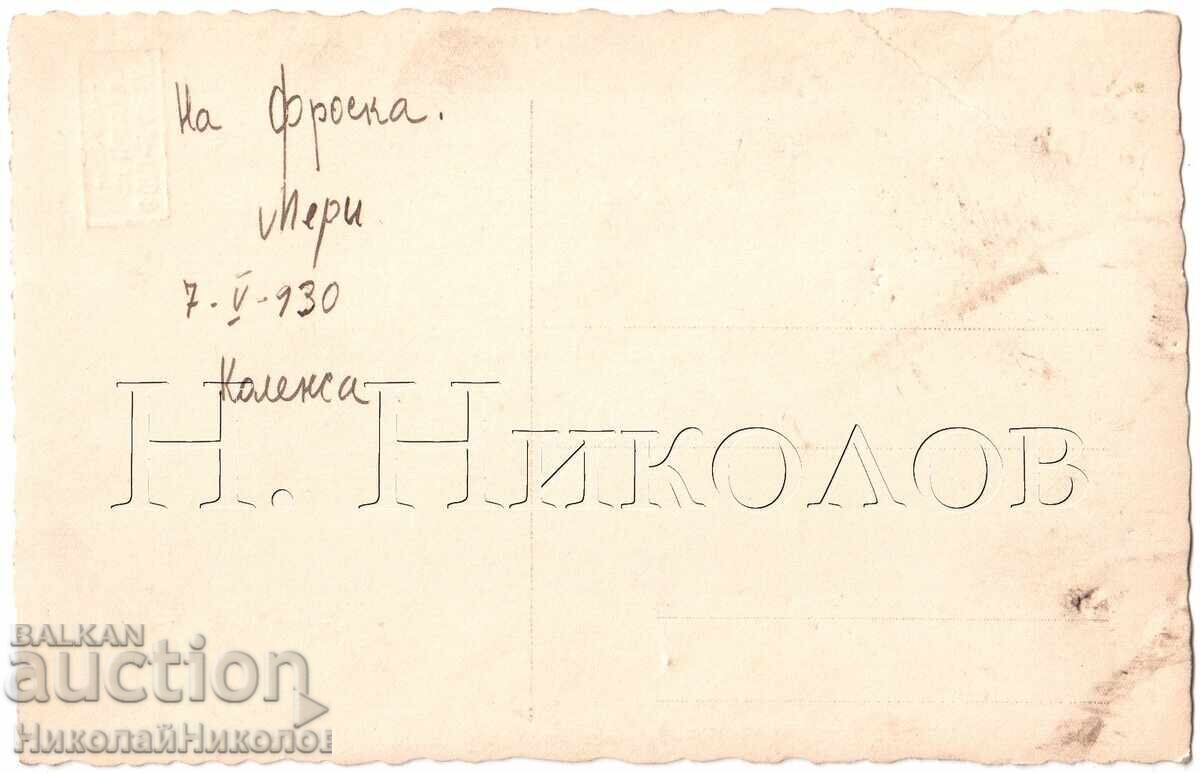 На Фроска.
Мери
7-V-930
Коленса
Н. Николов
BALKAN
auction
НиколайНиколов